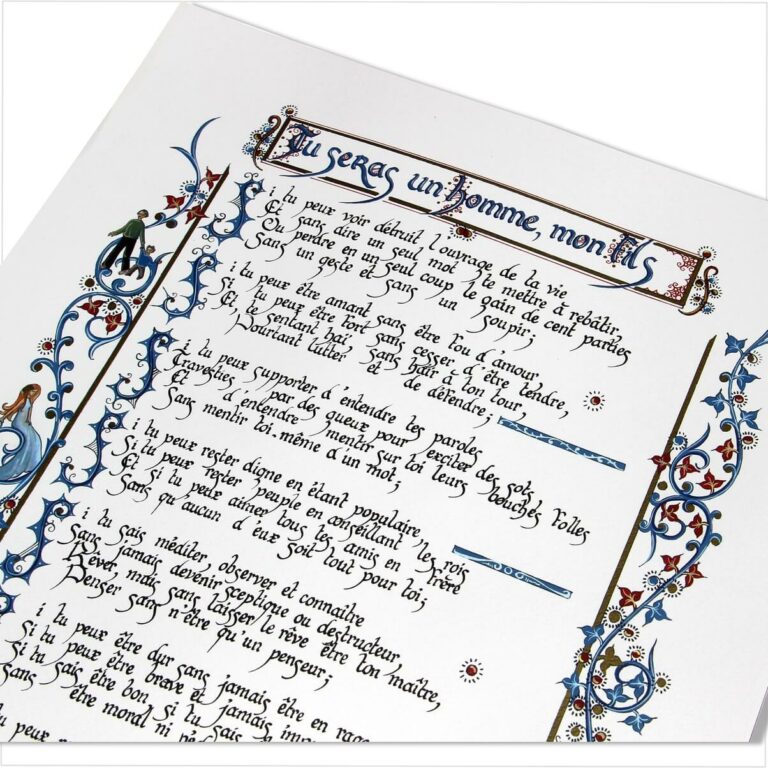 Tu seras un homme, mon fils
Si tu peux voir détruit l'ouvrage de ta vie
Et sans dire un seul mot te mettre à rebâtir,
Ou perdre en un seul coup le gain de cent parties
Sans un geste et sans un soupir;
Si tu peux être amant sans être fou d'amour,
Si tu peux être fort sans cesser d'être tendre,
Et, te sentant haï, sans haïr à ton tour,
Pourtant lutter et te défendre;
Si tu peux supporter d'entendre tes paroles
Travesties par des gueux pour exciter des sots,
Et d'entendre mentir sur toi leurs bouches folles
Sans mentir toi-même d'un mot;
Si tu peux rester digne en étant populaire,
Si tu peux rester peuple en conseillant les rois
Et si tu peux aimer tous tes amis en frère
Sans qu'aucun d'eux soit tout pour toi;
Si tu sais méditer, observer et connaître
Sans jamais devenir sceptique ou destructeur,
Rêver mais sans laisser le rêve être ton maître,
Penser sans n'être qu'un penseur;
Si tu peux être dur sans jamais être en rage
Si tu peux être brave et jamais
Si tu sais être bon si tu sais
être moral ni
tu peux